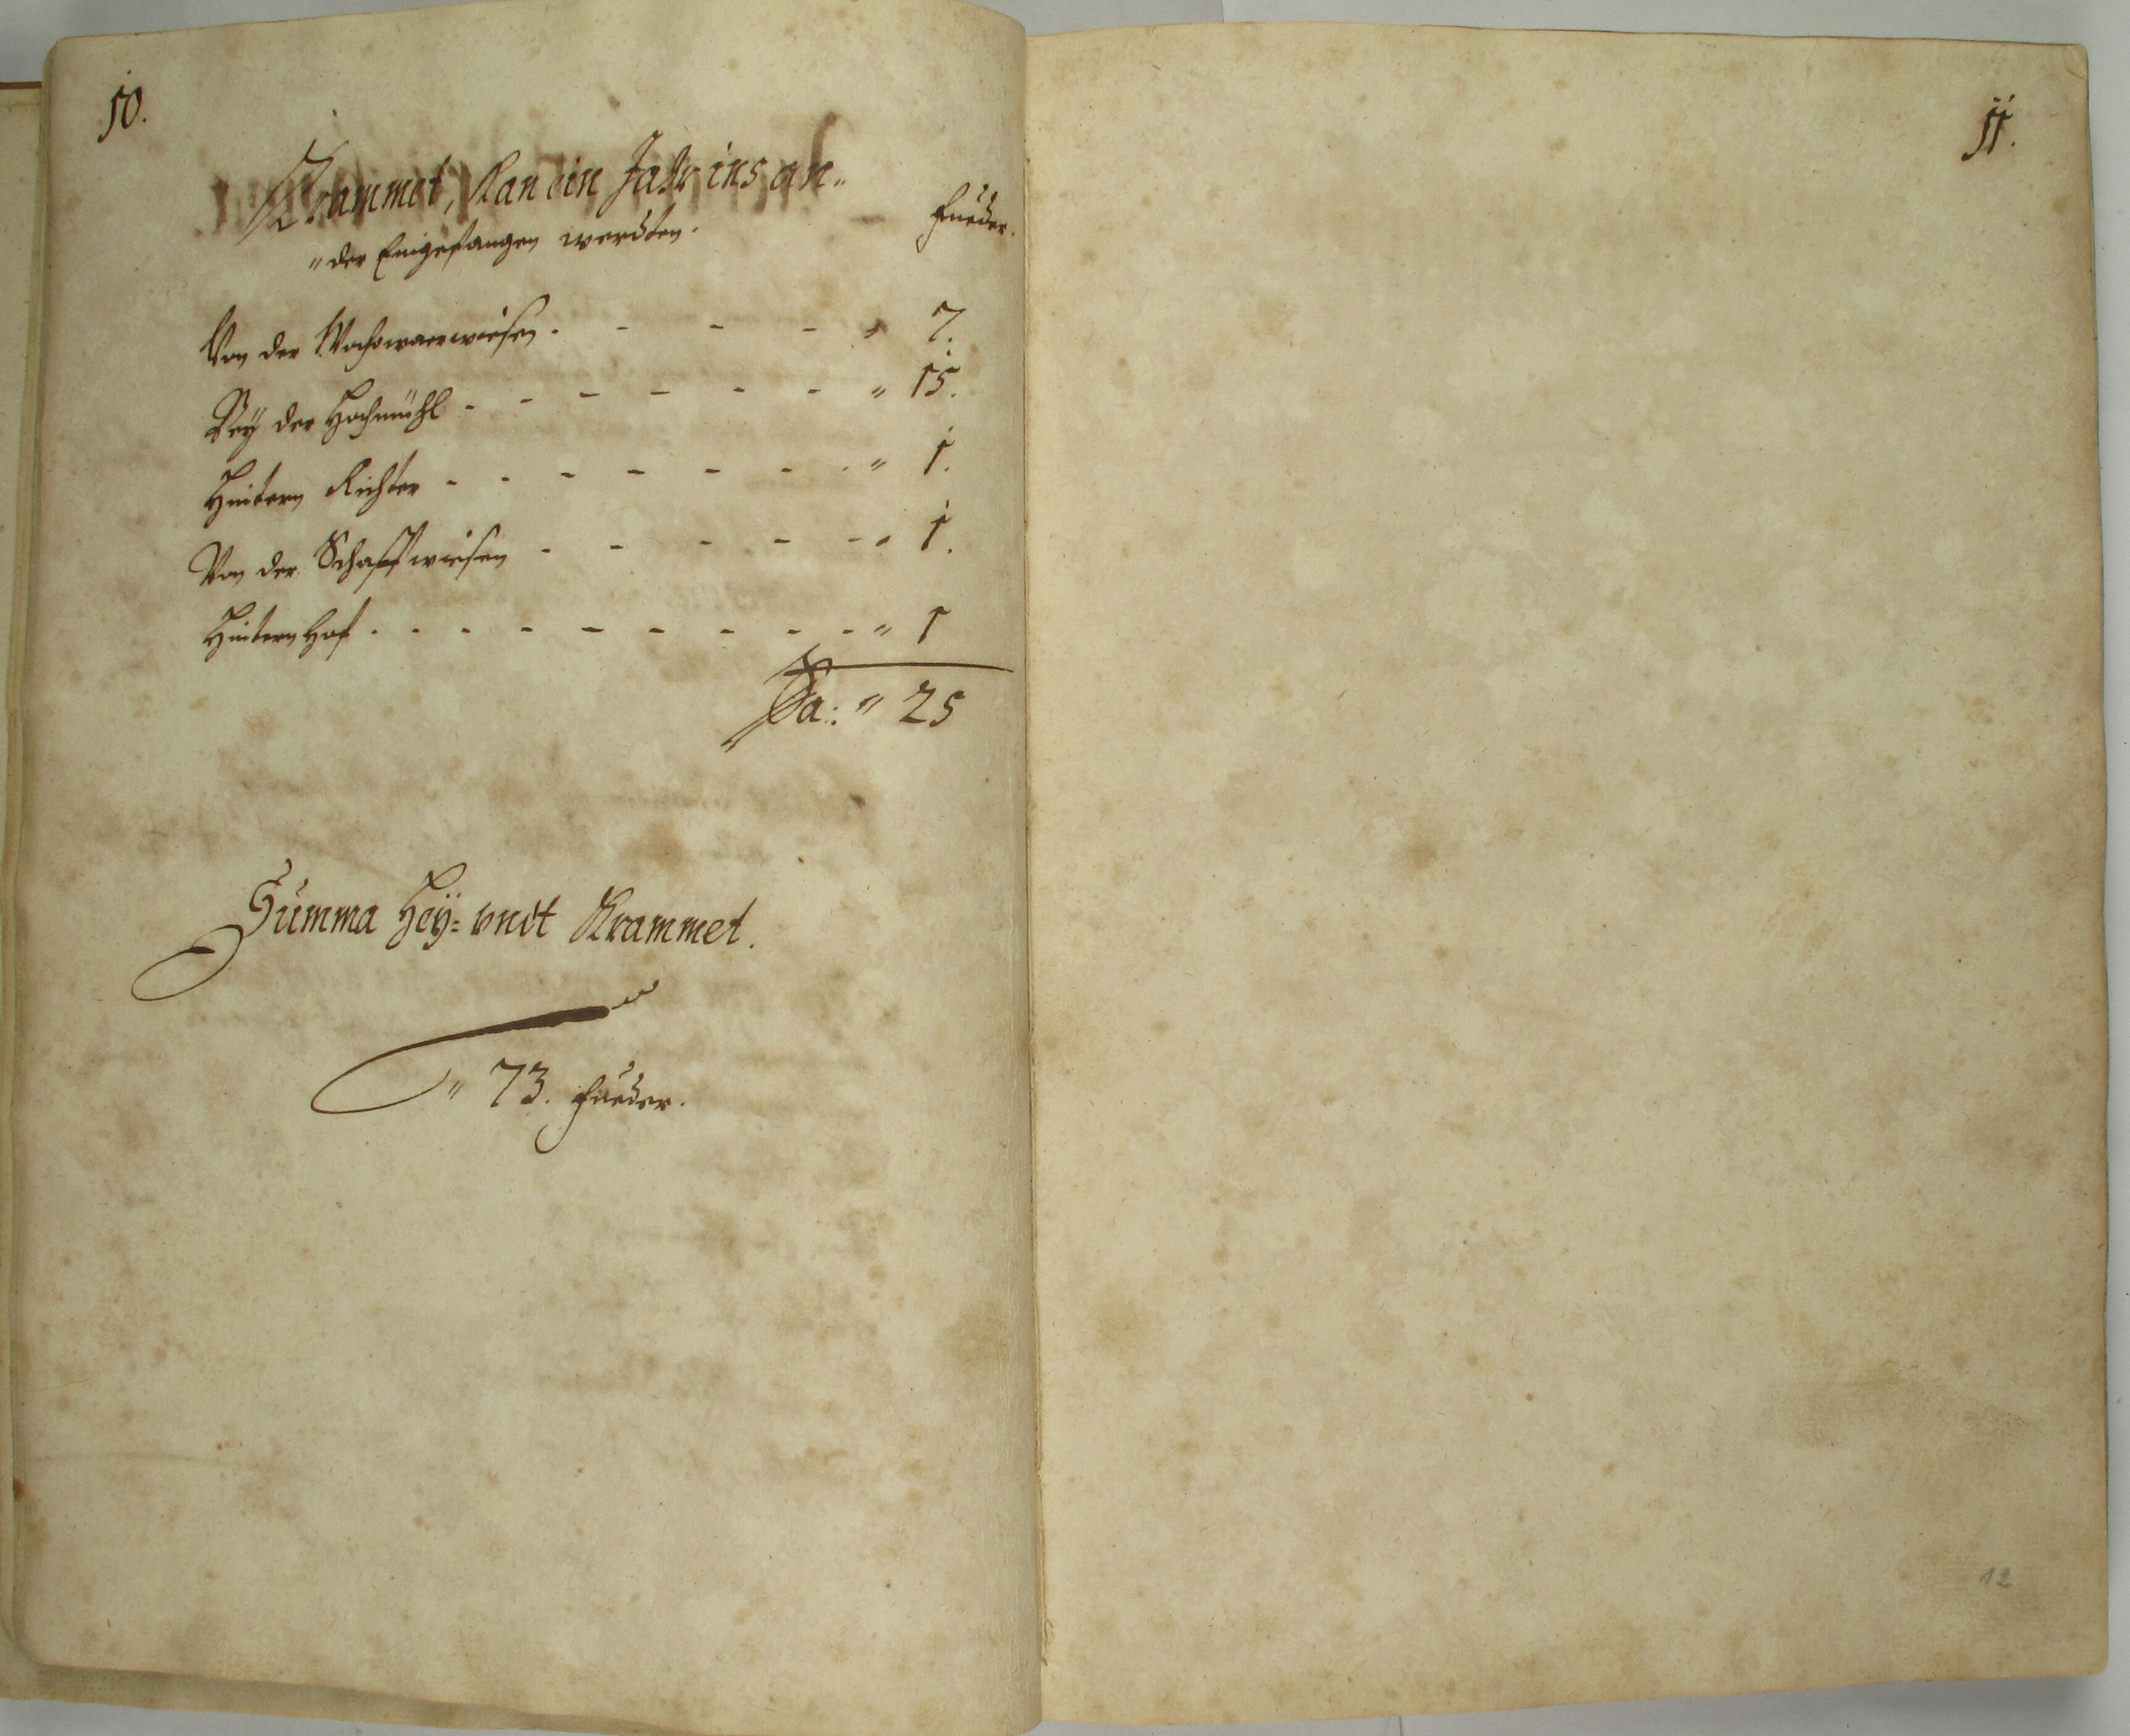 10.
Krammet, Kan ein Jahr ins an„
„der Eingefangen werdten.
Fueder.
Von der Wochowaerwiesen. - - - „ 7.
Bey der Hochmühl - - - - - - „ 15.
Hintern Richter - - - - - - . „ 1.
Von der Schaffwiesen - - - - - „ 1.
Hintern Hof . - - - - - - - - - „ 1
Sa: „ 25
Summa Hey= vndt Krammet.
„ 73. Fueder.
11.
12